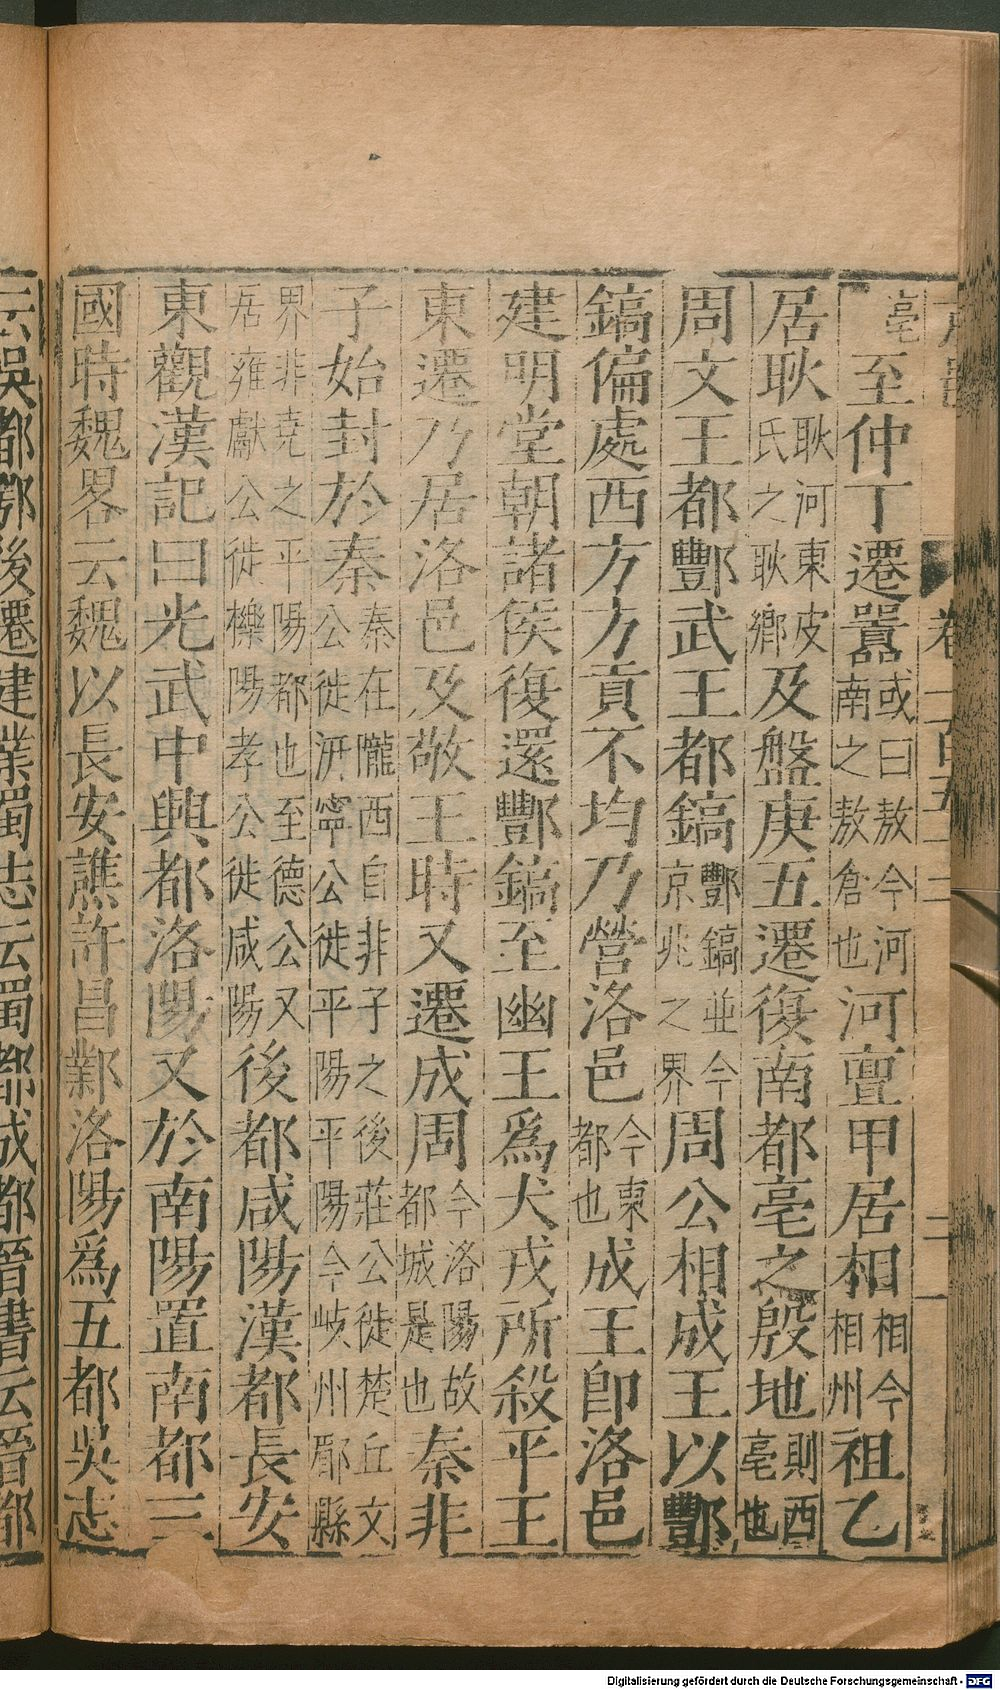 卷
二
亳至仲丁遷囂或曰敖今河南之敖倉也河亶甲居相相今相州祖乙
居耿耿河東皮氏之耿鄉及盤庚五遷復南都亳之殷地則西亳也
周文王都酆武王都鎬酆鎬並今京兆之界周公相成王以酆
鎬偏處西方方貢不均乃營洛邑今東都也成王即洛邑
建明堂朝諸侯復還酆鎬至幽王爲犬戎所殺平王
東遷乃居洛邑及敬王時又遷成周今洛陽故都城是也秦非
子始封於秦秦在隴西自非子之後莊公徙楚丘文公徙汧寧公徙平陽平陽今岐州郿縣
界非堯之平陽都也至德公又居雍獻公徙櫟陽孝公徙咸陽後都咸陽漢都長安
東觀漢記曰光武中興都洛陽又於南陽置南都三
國時魏畧云魏以長安譙許昌鄴洛陽爲五都吳志
云吳都鄂後遷建業蜀志云蜀都成都晉書云晉都
Digitalisierung gefördert durch die Deutsche Forschungsgemeinschaft - DFG